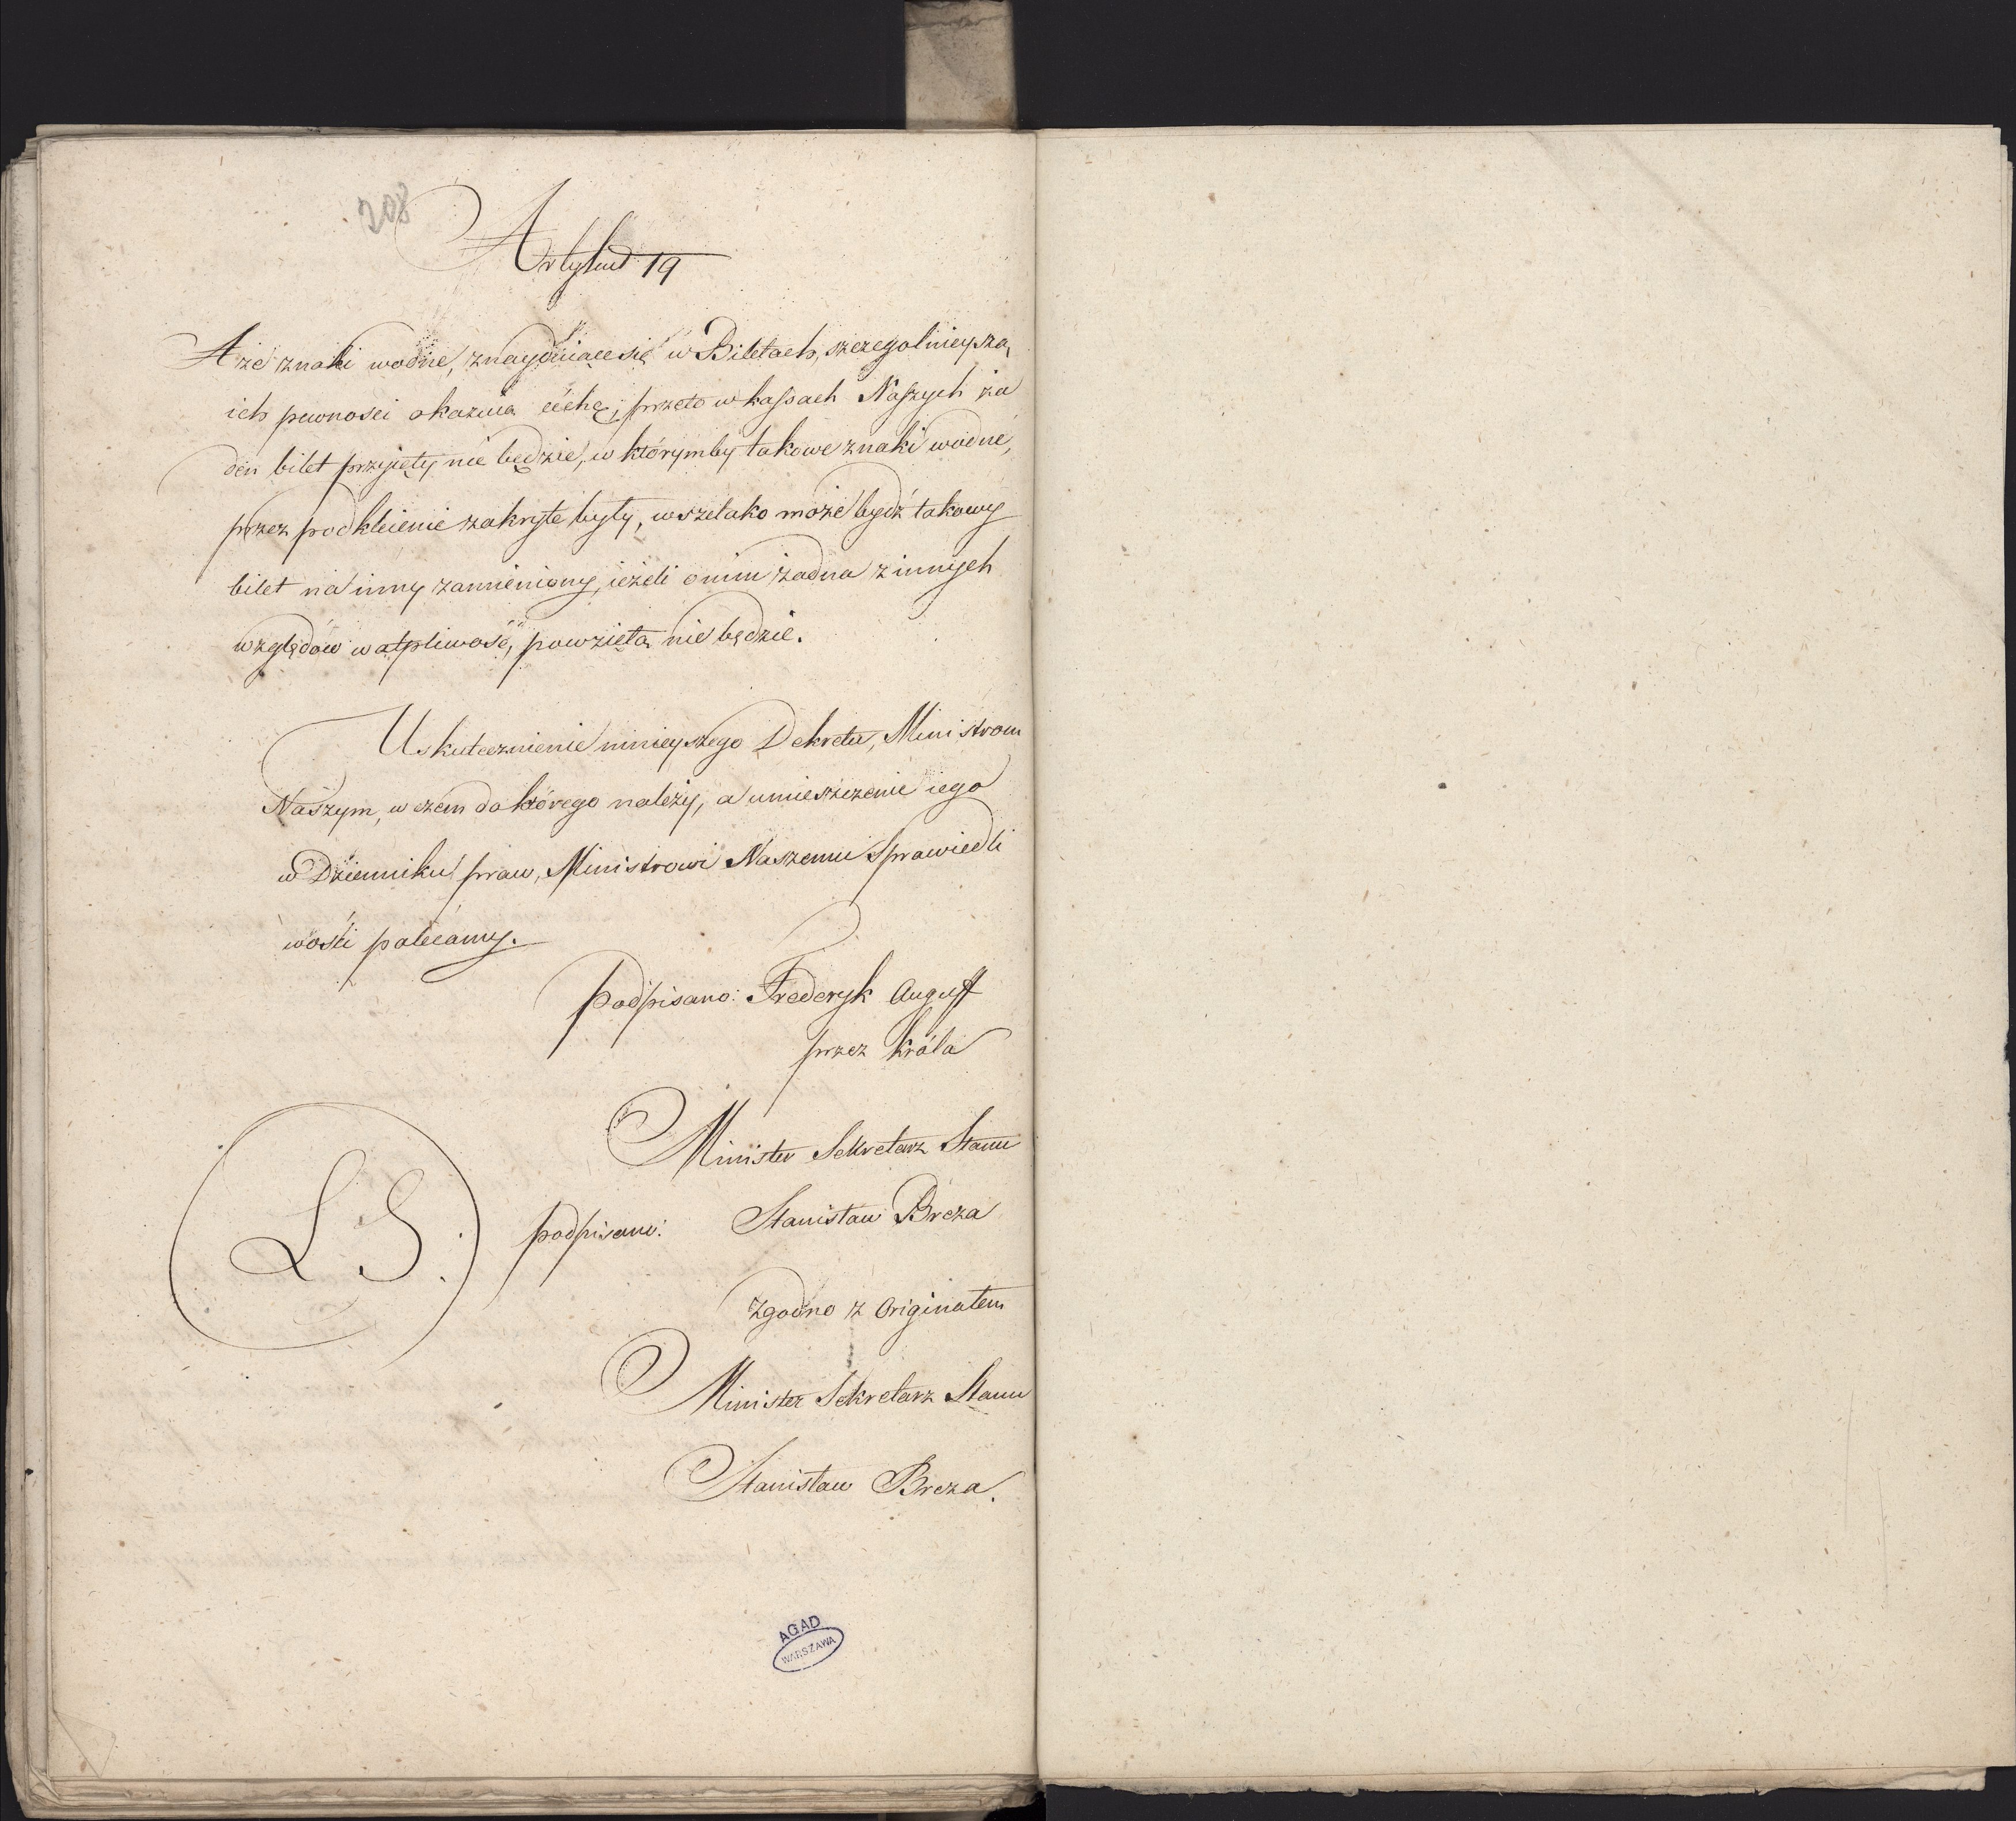 208
Artykuł 19
A że znaki wodne, znayduiące się w Biletach, szczegolnieyszą
ich pewnosci okazuią céchę, przeto w kassach Naszych ża
den bilet przyięty nie będzie, w którymby takowe znaki wodne,
przez podkleienie zakryte były, wszelako może bydź takowy
bilet na inny zamieniony, ieżeli o nim żadna z innych
względów wątpliwość, powziętą nie będzie.
Uskutecznienie ninieyszego Dekretu, Ministrom
Naszym, w czem do którego należy, a umieszczenie iego
w Dzienniku praw, Ministrowi Naszemu Sprawiedli
wości polécamy.
podpisano: Frederyk August
przez Króla
Minister Sekretarz Stanu
L S.
podpisano: Stanisław Breza
Zgodno z Originałem
Minister Sekretarz Stanu
Stanisław Breza.
AGAD
WARSZAWA